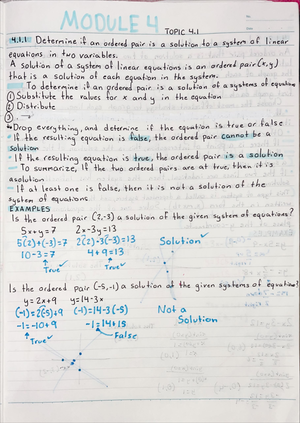 MODULE 4
TOPIC 4.1
4.1.1 Determine if an ordered pair is a solution to a system of linear
equations in two variables.
A solution of a system of linear equations is an ordered pair (x,y)
that is a solution of each equation in the system.
To determine if an ordered pair is a solution of a systems of equation
① Substitute the values for x and y in the equation
② Distribute
③
Drop everything, and determine if the equation is true or false
- If the resulting equation is false, the ordered pair cannot be a
solution
- If the resulting equation is true, the ordered pair is a solution
- To summarize, If the two ordered pairs are at true, then it is
a solution
- If at least one is false, then it is not a solution of the
system of equations
EXAMPLES
Is the ordered pair (2,-3) a solution of the given system of equations?
5x+y=7 2x-3y=13
5(2)+(-3)=7 2(2)-3(-3)=13 Solution
10-3=7 4+9=13
True True
Is the ordered pair (-5,-1) a solution of the given systems of equation?
y=2x+9 y=14-3x
(-1)=2(-5)+9 (-1)=14-3(-5) Not a
-1=-10+9 -1=14+15 Solution
True False